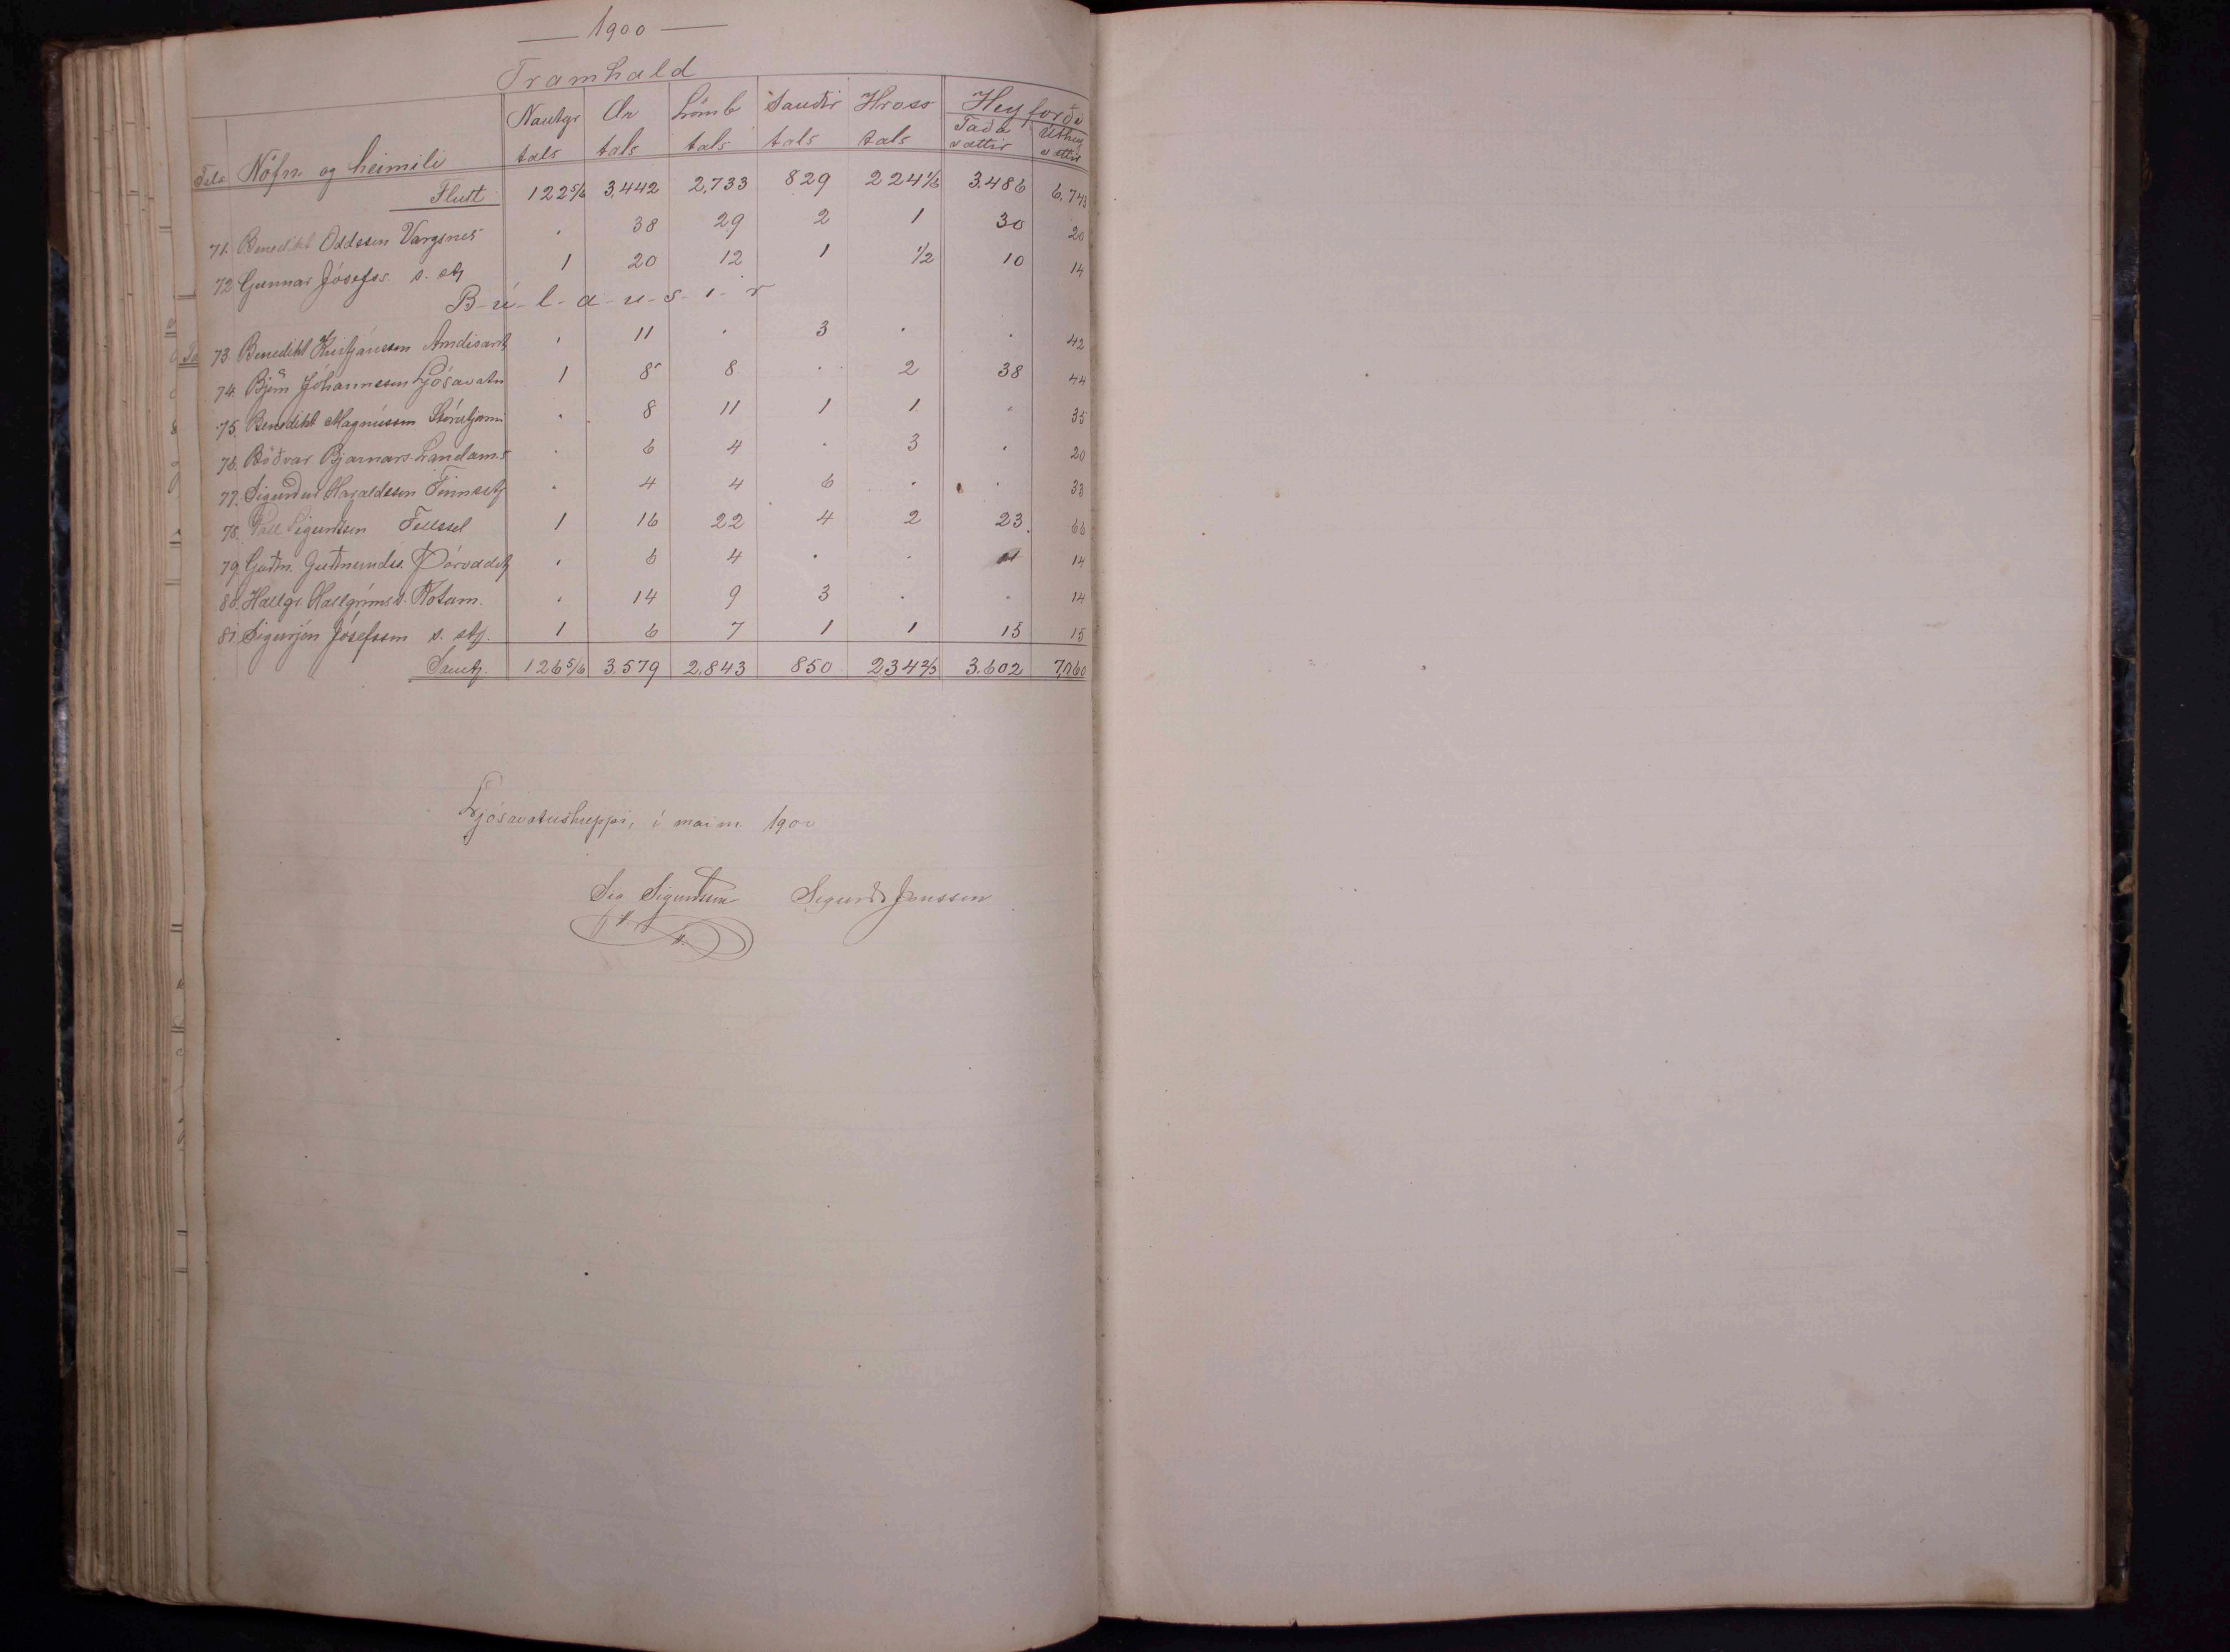 — 1900 —
Framhald
Nautgr Ær Lömb Sauðir Hross Heyforði
Tala Nöfn og heimili tals tals tals tals tals Taða vættir Úthey vættir
Flutt 122 5/6 3,442 2,733 829 224 1/6 3.486 6,743
71. Benedikt Oddsson Vargsnes . 38 29 2 1 30 20
72. Gunnar Jósefss. s. st. 1 20 12 1 1/2 10 14
B-ú-l-a-u-s-i-r
73. Benedikt Kristjánsson Arndísarst . 11 . 3 . . 42
74. Björn Jóhannesson Ljósavatn 1 8 8 . 2 38 44
75. Benedikt Magnússon Stórutjörn . 8 11 1 1 . 35
76. Böðvar Bjarnars. Landam.s . 6 4 . 3 . 20
77. Sigurður Haraldsson Finnsst . 4 4 6 . . 33
78. Páll Sigurðsson Fellssel 1 16 22 4 2 23 66
79. Guðm. Guðmundss. Þóroddst . 6 4 . . 14
80. Hallgr. Hallgrímss. Rotum. . 14 9 3 . . 14
81. Sigurjón Jósefsson s. st. 1 6 7 1 1 15 15
Samt. 126 5/6 3.579 2.843 850 234 2/3 3.602 7,060
Ljósavatnshreppi, í maím. 1900
Sig Sigurðsson Sigurðr Jónsson